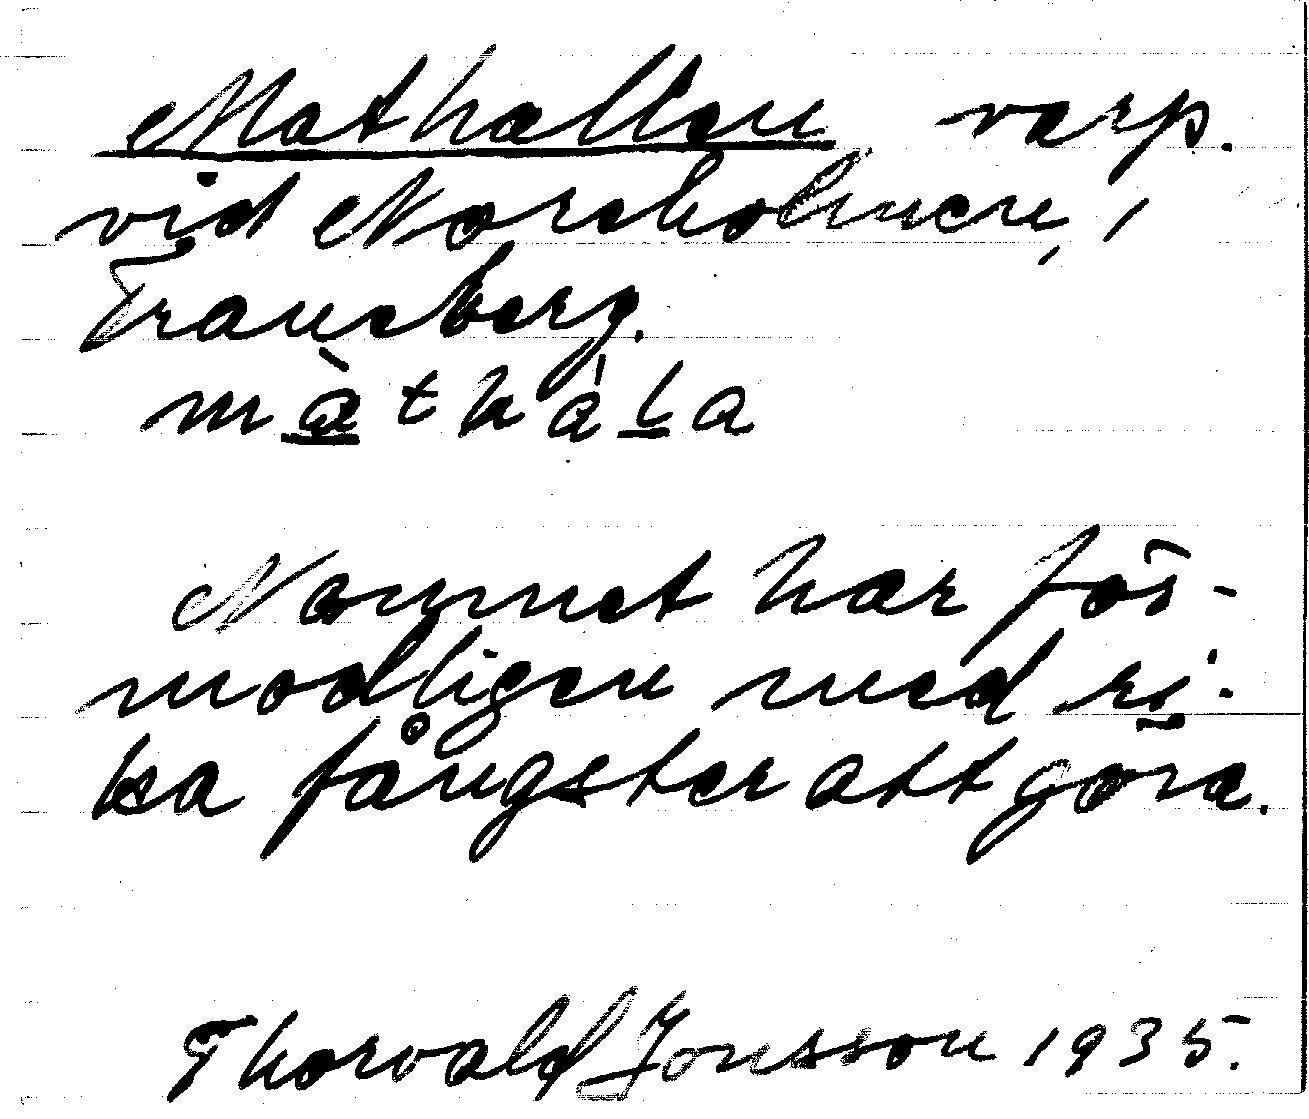 Mathallen varp.
vid Noreholmen, i
Traneberg.
màthàla
Namnet har för-
modligen med ri-
ka fångster att göra.
Thorvald Jonsson 1935.